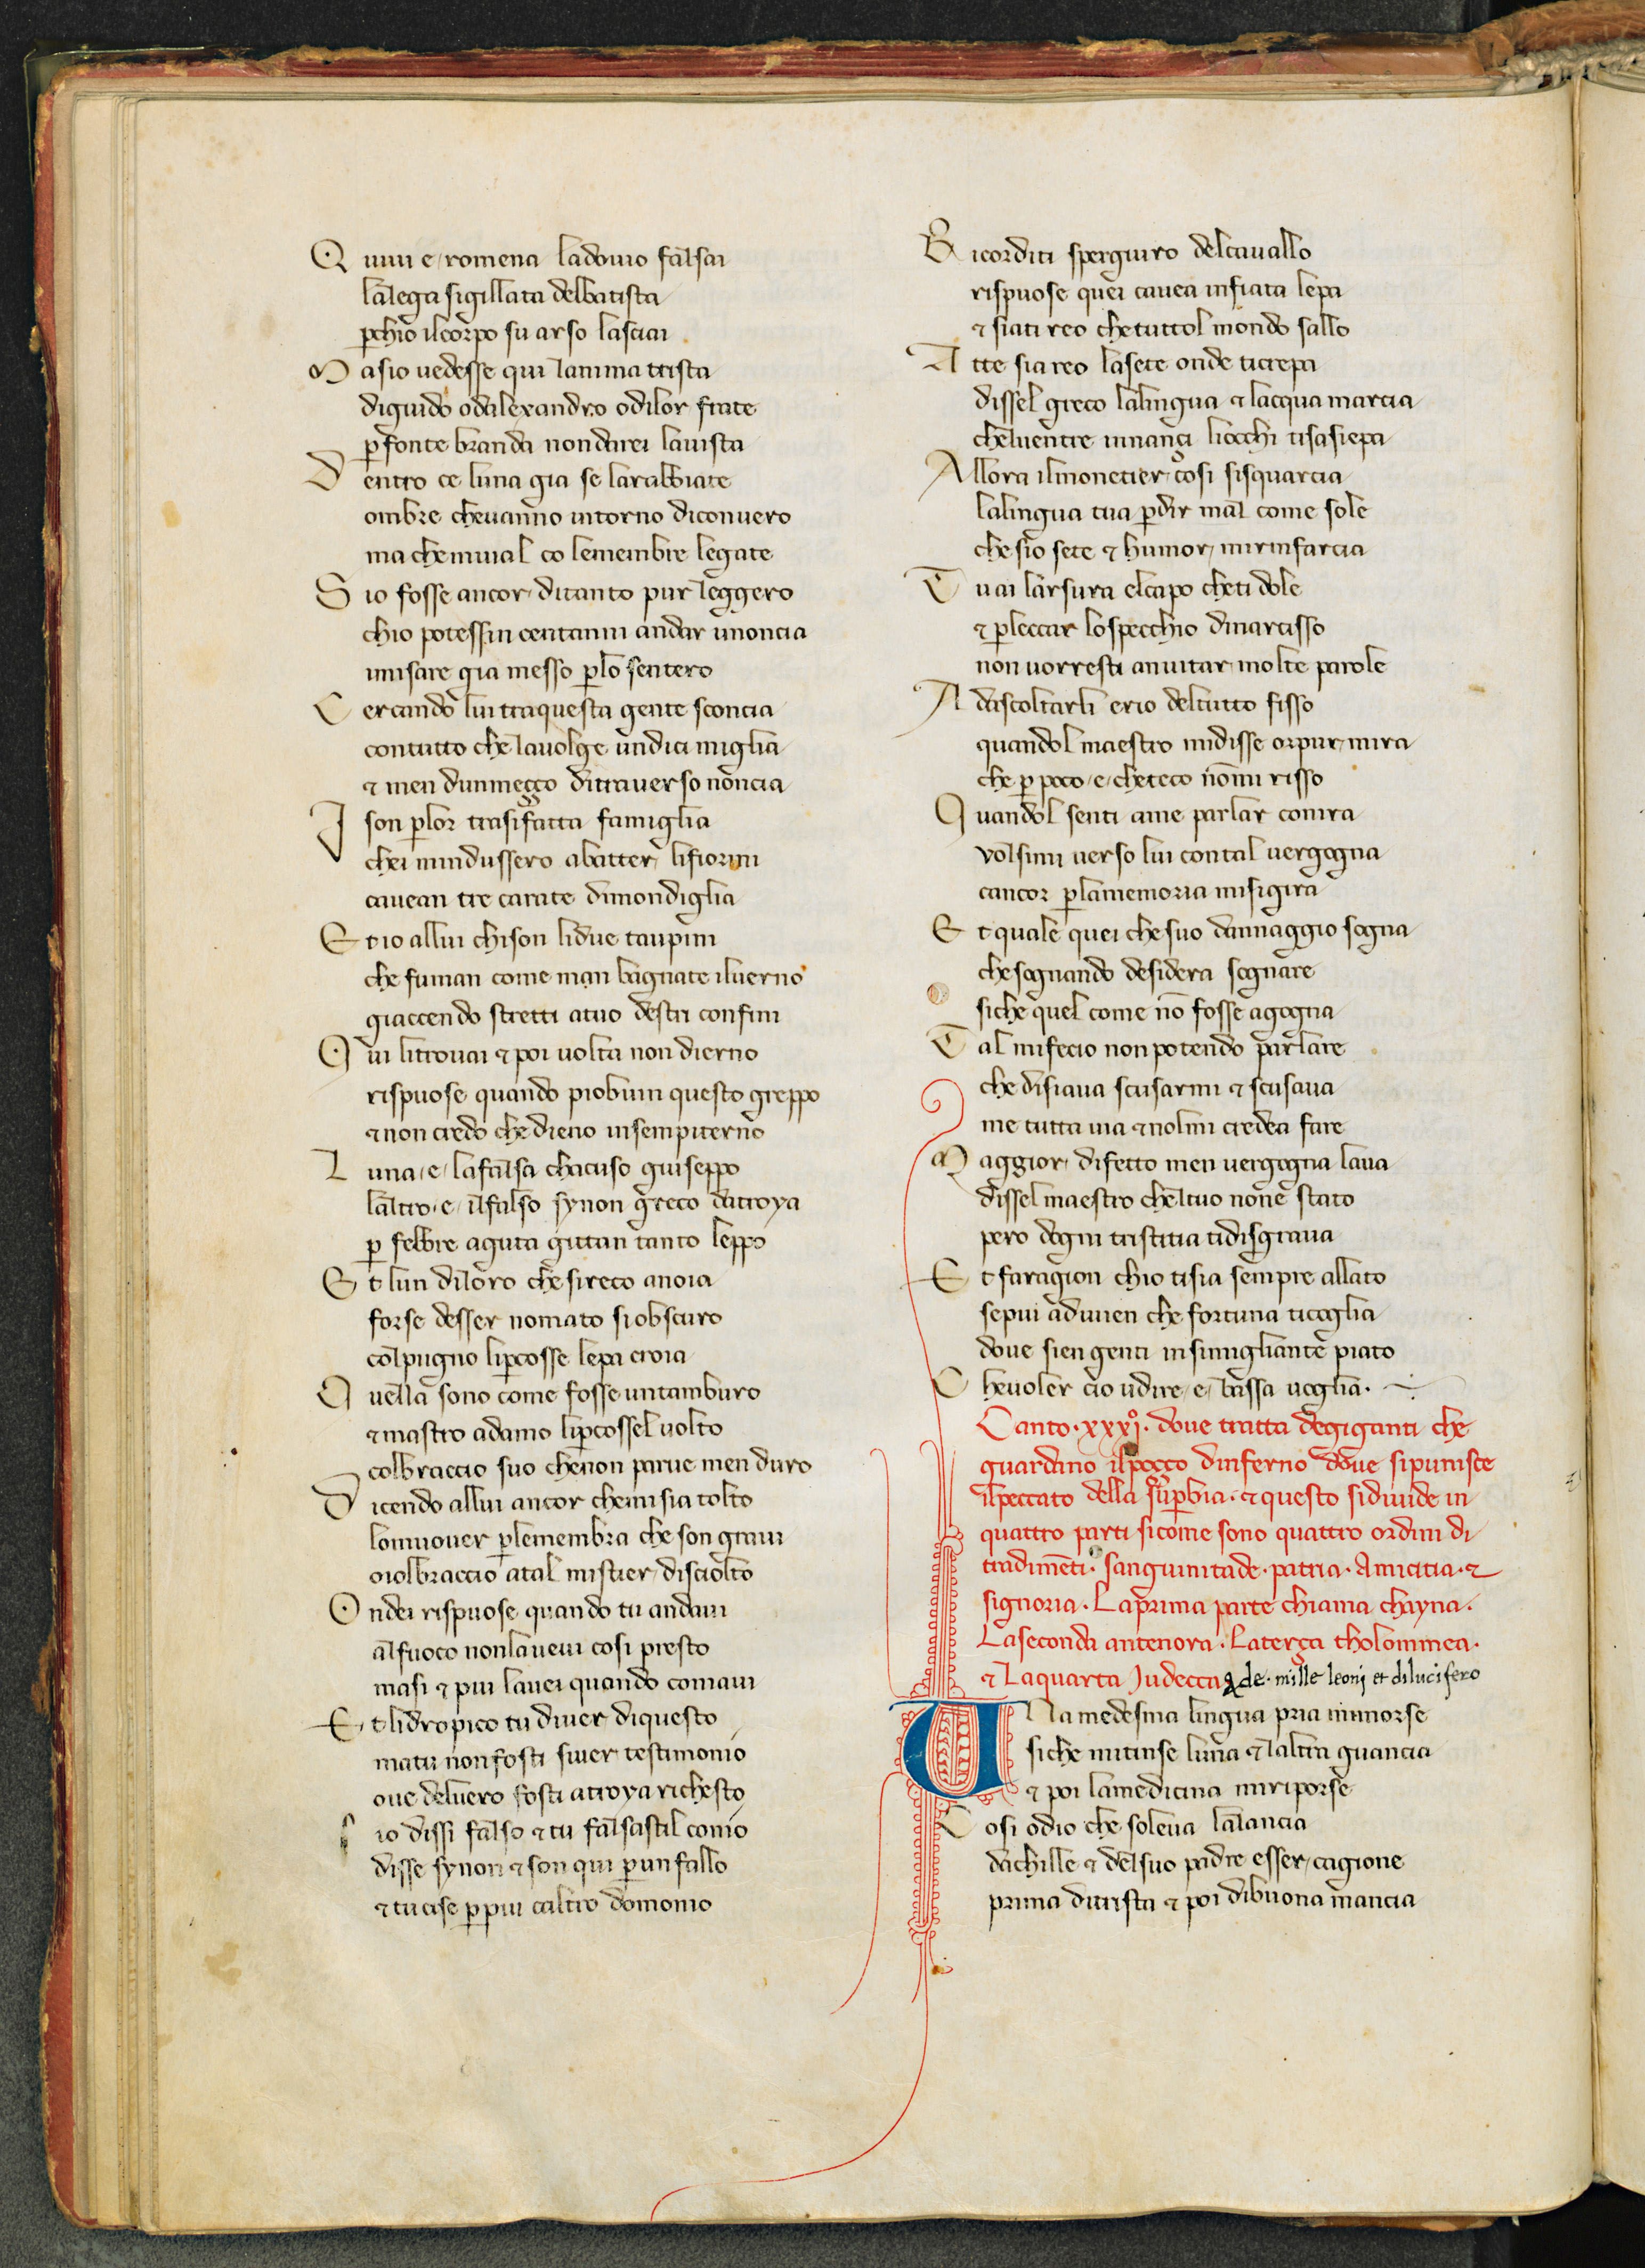 Quiui e romena ladouio falsai
lalega sigillata delbatista
pchio ilcorpo su arso lasciai
Masio uedesse qui lanima trista
diguido odalexandro odilor frate
p fonte branda non darei lauista
Dentro ce luna gia se larabbiate
ombre cheuanno intorno diconuero
ma chemiual co lemembre legate
Sio fosse ancor ditanto pur leggero
chio potessin centanni andar unoncia
imisare gia messo plo sentero
Cercando lui traquesta gente sconcia
contutto che lauolge undici miglia
⁊ men dunmeço ditrauerso noncia
Ison plor trasifatta famiglia
chei mindussero abatter lifiorini
cauean tre carate dimondiglia
Et io allui chison lidue taupini
che fuman come man bagnate iluerno
giaccendo stretti atuo destri confini
Qui litrouai ⁊ poi uolta non dierno
rispuose quando piobuui questo greppo
⁊ non credo che dieno insempiterno
Luna e lafalsa chacuso guiseppo
laltro e ilfalso synon greco datroya
p febbre aguta gittan tanto leppo
Et lun diloro che sireco anoia
forse desser nomato siobscuro
colpugno lipcosse lepa croia
Quella sono come fosse untamburo
⁊ mastro adamo lipcossel uolto
colbraccio suo chenon parue men duro
Dicendo allui ancor chemisia tolto
lomuouer plemembra che son graui
oiolbraccio atal mistier disciolto
Ondei rispuose quando tu andaui
alfuoco nonlaueui cosi presto
masi ⁊ piu lauei quando coniaui
Et lidropico tu diuer diquesto
matu non fosti siuer testimonio
oue deluero fosti atroya richesto
sio dissi falso ⁊ tu falsastil conio
disse synon ⁊ son qui p un fallo
⁊ tu cise p piu caltro domonio
Ricorditi sperguiro delcauallo
rispuose quei cauea infiata lepa
⁊ siati reo chetuttol mondo sallo
Atte sia reo lasete onde ticrepa
dissel greco lalingua ⁊ lacqua marcia
cheluentre innançi liocchi tisasiepa
Allora ilmonetier cosi sisquarcia
lalingua tua pdir mal come sole
che sio sete ⁊ humor mirinfarcia
Tu ai larsura elcapo cheti dole
⁊ pleccar lospecchio dinarcisso
non uorresti anuitar molte parole
Adascoltarli erio deltutto fisso
quandol maestro midisse orpur mira
che p poco e cheteco nōmi risso
Quandol senti ame parlar conira
volsimi uerso lui contal uergogna
cancor plamemoria misigira
Et quale quei chesuo dannaggio sogna
chesognando desidera sognare
siche quel come nō fosse agogna
Tal mifecio nonpotendo parlare
che disiaua scusarmi ⁊ scusaua
me tutta uia ⁊ nolmi credea fare
Maggior difetto men uergogna laua
dissel maestro cheltuo none stato
pero dogni tristitia tidisgraua
Et faragion chio tisia sempre allato
sepiu aduuien che fortuna ticoglia
doue sien genti insimigliante piato
Cheuoler cio udire e bassa uoglia.
Canto .xxxj°. doue tratta degiganti che
guardano ilpoçço dinferno doue sipunisce
ilpeccato della supbia. ⁊ questo sidiuide in
quattro parti sicome sono quattro ordini di
tradimēti. sanguinitade. patria. Amicitia. ⁊
signoria. Laprima parte chiama chayna.
Laseconda antenora. Laterça tholommea.
⁊ Laquarta Judecca & de mille leoni et dilucifero
Una medesma lingua pria mimorse
siche mitinse luna ⁊ laltra guancia
⁊ poi lamedicina miriporse
Cosi odio che soleua lalancia
dachille ⁊ delsuo padre esser cagione
prima ditrista ⁊ poi dibuona mancia